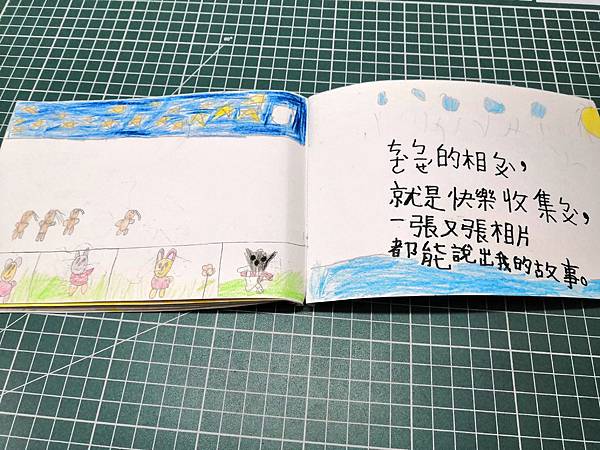 的相
就是快樂收集
一張又張相片
都能說出我的故事。